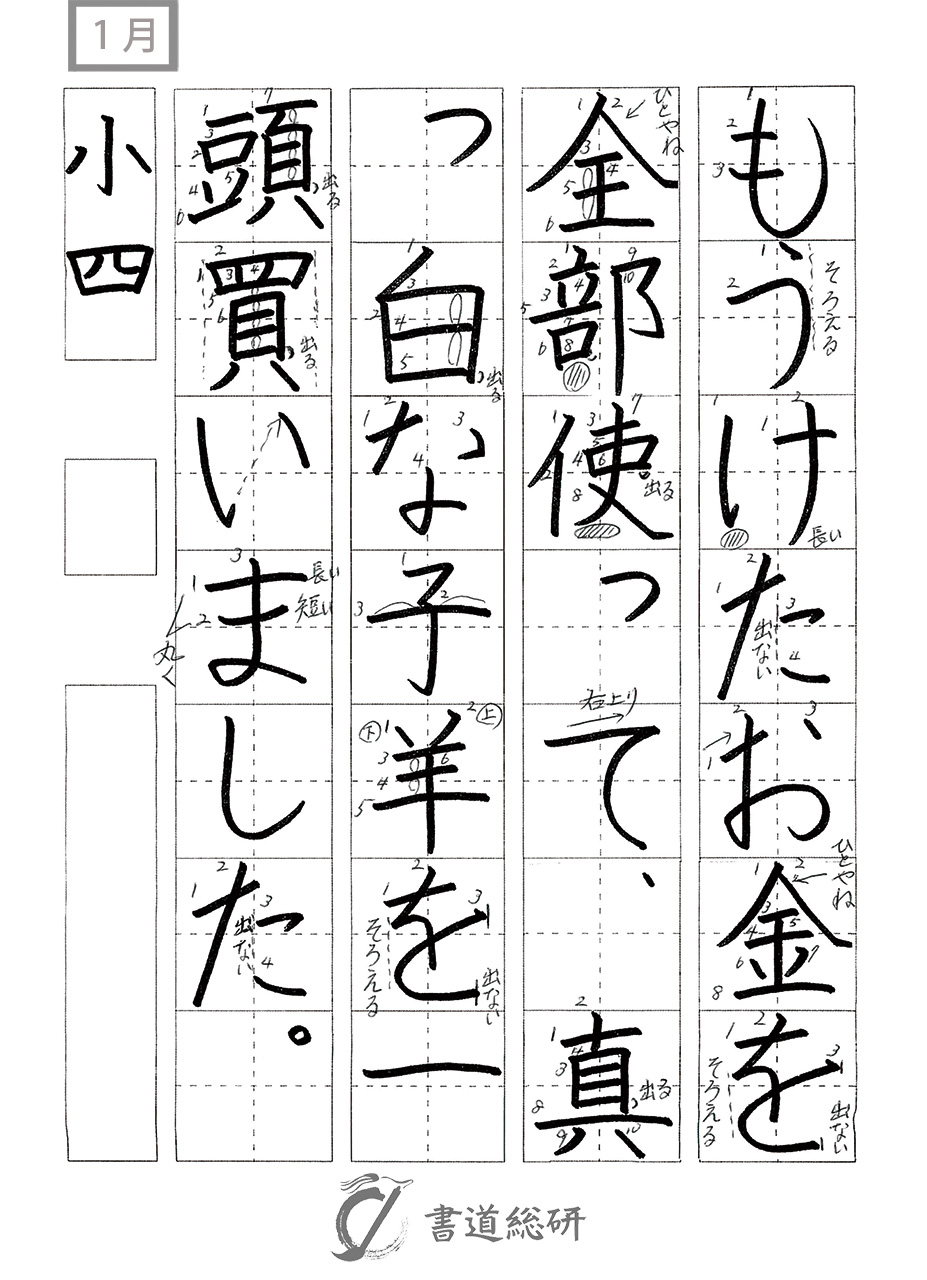 1月
もうけたお金を
全部使って、真
っ白な子羊を一
頭買いました。
小四
そろえる
長い
出ない
ひとやね
そろえる
出ない
ひとやね
出る
出る
右上り
出る
出る
下
上
そろえる
出ない
出る
出る
長い
短い
丸く
出ない
書道総研